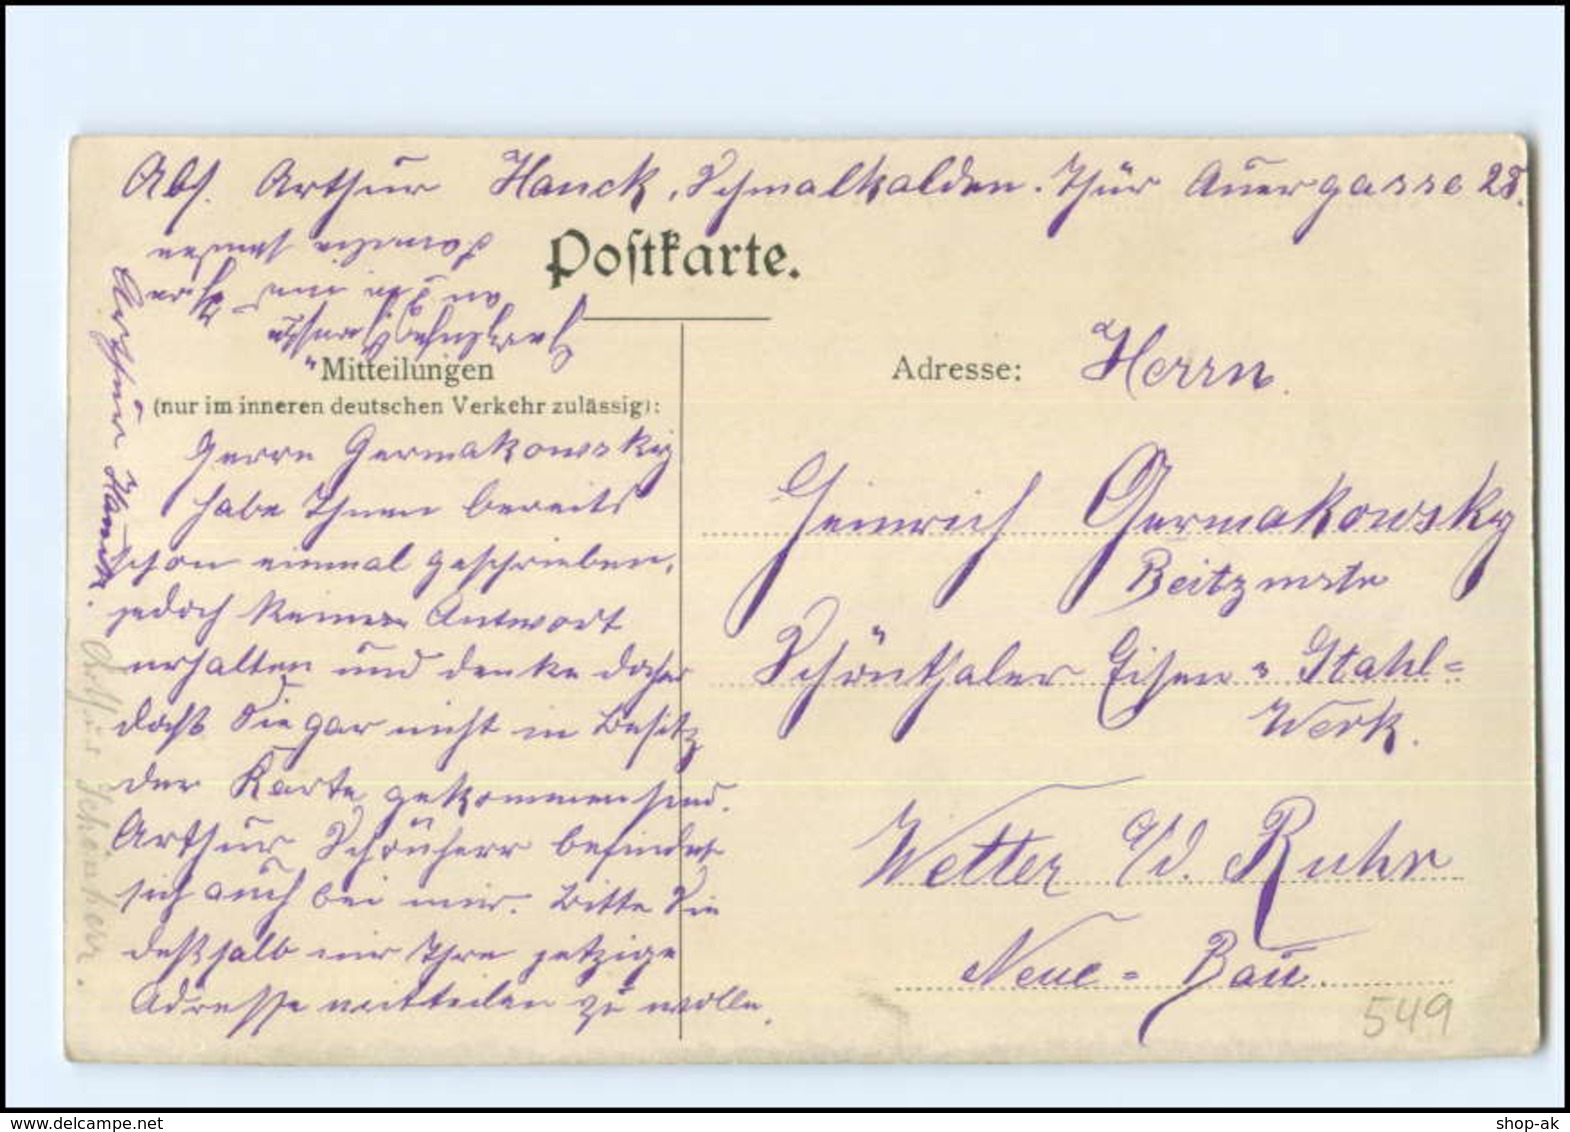 Abs. Arthur Hanck, Schmalkalden. Thür Auergasse 28.
Postkarte.
Mitteilungen
(nur im inneren deutschen Verkehr zulässig):
Herrn Germakowsky
habe Ihnen bereits
schon einmal geschrieben,
jedoch keine Antwort
erhalten und denke daher
daß Sie gar nicht in Besitz
der Karte gekommen sind.
Arthur Schönherr befindet
sich auch bei mir. Bitte Sie
deßhalb mir Ihre jetzige
Adresse mitteilen zu wollen.
Herzliche Grüsse
an Sie und Ihre
Familie sendet
Arthur Hanck.
Arthur Schönherr.
Adresse: Herrn
Heinrich Germakowsky
Beitzmstr
Schönthaler Eisen = Stahl=
Werk.
Wetter a/d. Ruhr
Neue = Bau.
549
shop-ak